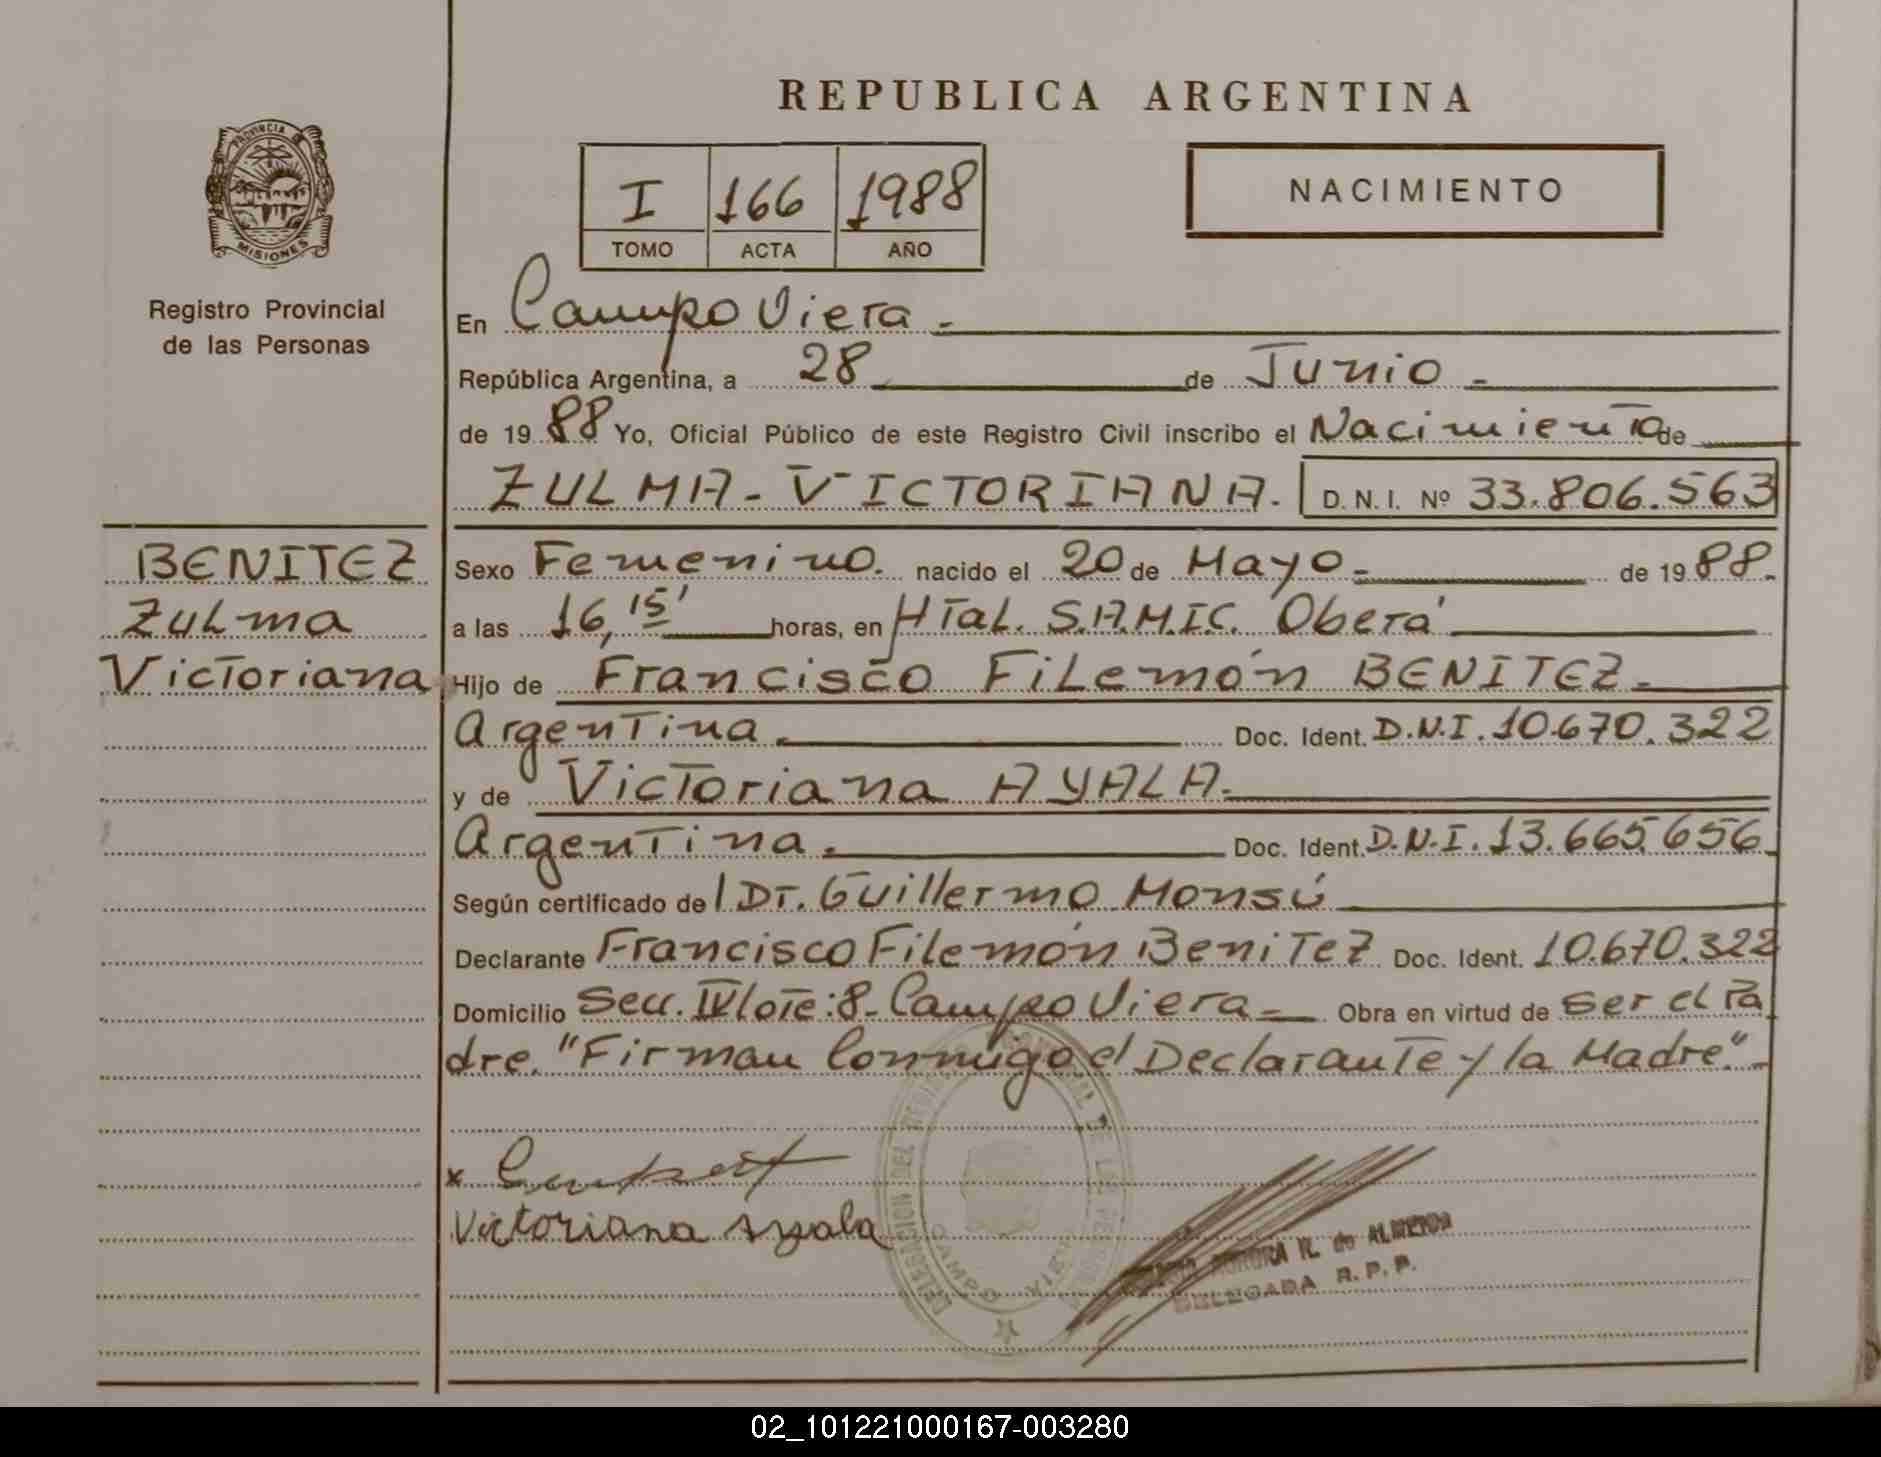 REPUBLICA ARGENTINA
PROVINCIA DE
MISIONES
Registro Provincial
de las Personas
I 166 1988
TOMO ACTA AÑO
NACIMIENTO
En Campo Viera.
República Argentina, a 28 de Junio
de 1988 Yo, Oficial Público de este Registro Civil inscribo el Nacimiento de
ZULMA - VICTORIANA. D. N. I. Nº 33.806.563
BENITEZ
Zulma
Victoriana
Sexo Femenino. nacido el 20 de Mayo. de 1988.
a las 16,15' horas, en HTal. S.A.M.I.C. Oberá
Hijo de Francisco Filemón BENITEZ.
Argentina. Doc. Ident. D.N.I. 10.670.322
y de Victoriana AYALA.
Argentina. Doc. Ident. D.N.I. 13.665.656
Según certificado de Dr. Guillermo Monsú
Declarante Francisco Filemón Benitez Doc. Ident. 10.670.322
Domicilio Secc. IV lote: 8 - Campo Viera Obra en virtud de ser el Pa
dre. "Firman Conmigo el Declarante y la Madre".
x
Victoriana Ayala
DELEGACION DEL REGISTRO PROVINCIAL DE LAS PERSONAS
CAMPO VIERA
AURORA R. de ALMEIDA
DELEGADA R.P.P.
02_101221000167-003280